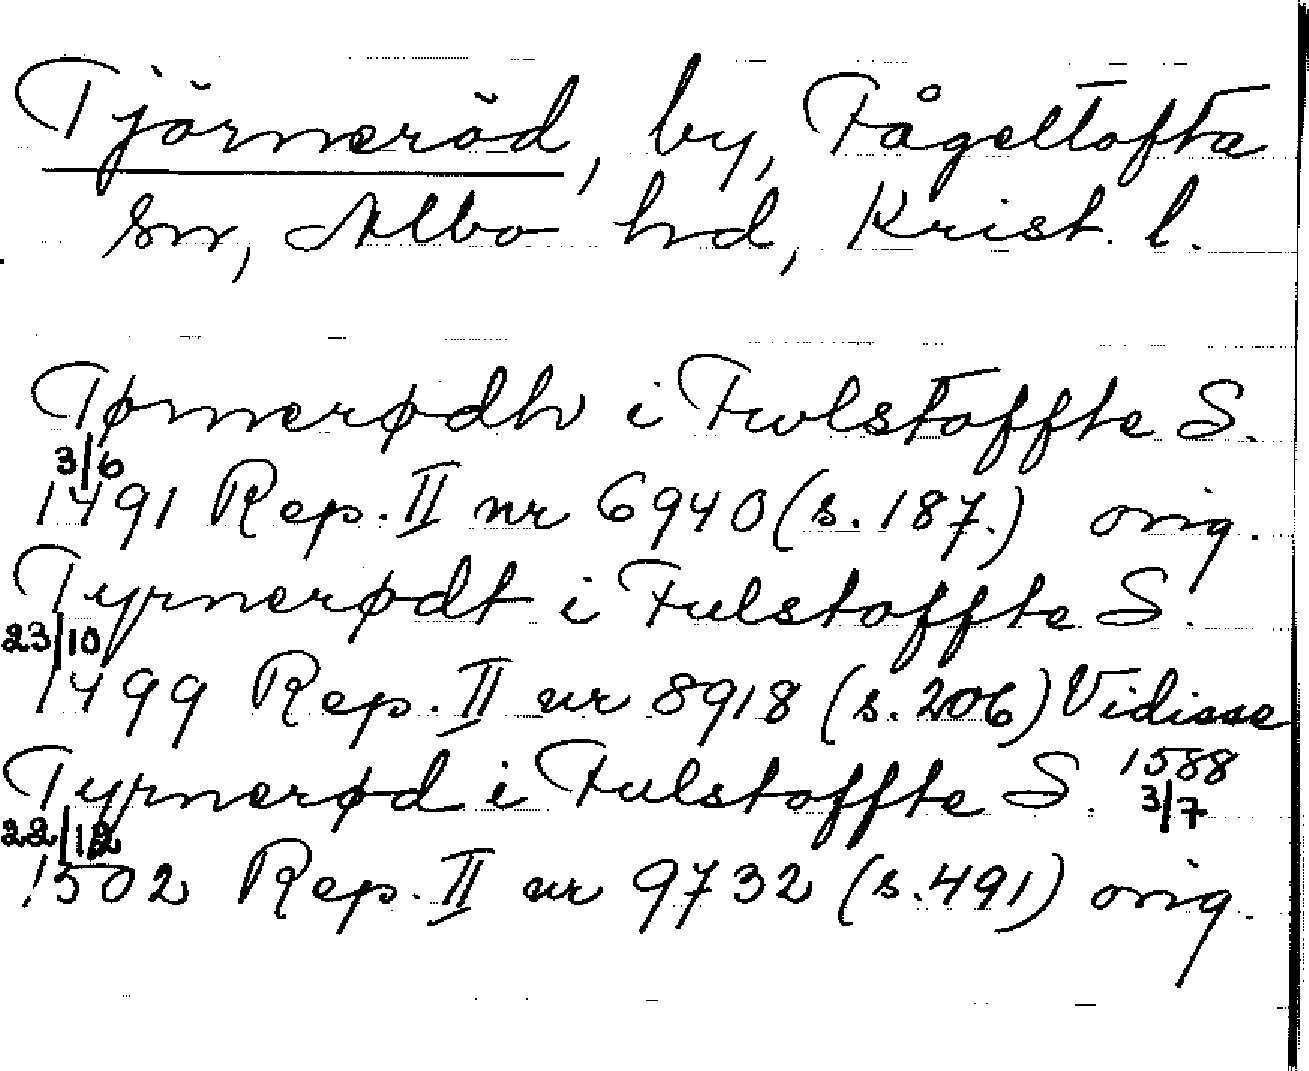 Tjörneröd, by, Fågeltofta
sn, Albo hd, Krist. l.
Tørnerødh i Fwlstoffte S.
3/6
1491 Rep. II nr 6940 (s. 187.) orig.
Tyrnerødt i Fulstoffte S.
23/10
1499 Rep. II nr 8918 (s. 206) Vidisse
1588
Tyrnerød i Fulstoffte S. 3/7
22/12
1502 Rep. II nr 9732 (s. 491) orig.